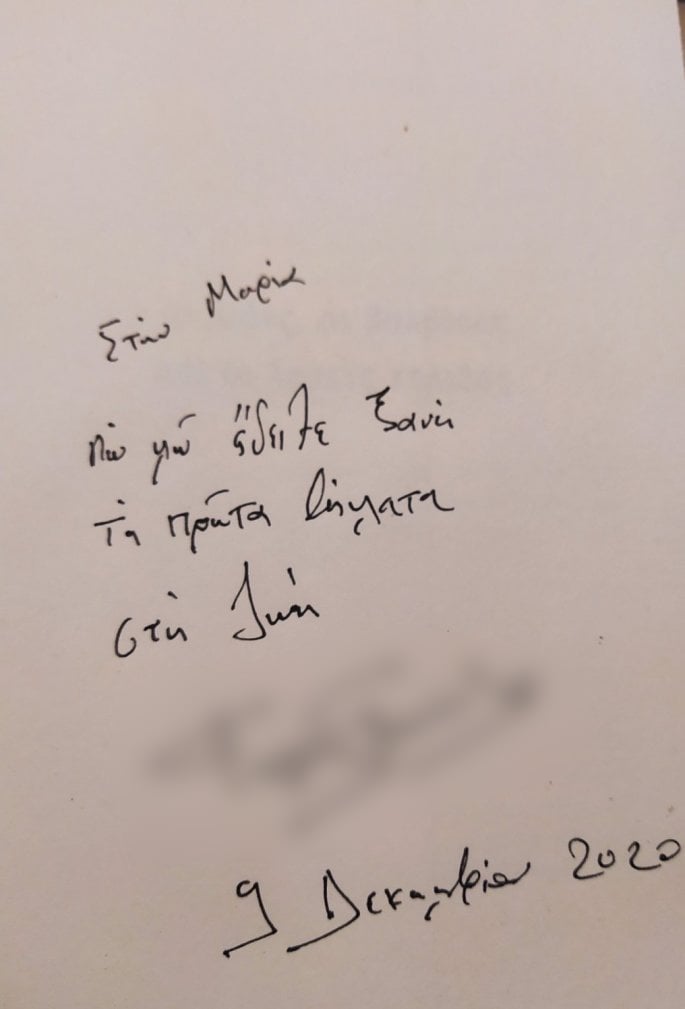 Στὴν Μαρία
ποὺ μοῦ ἔδειξε ξανὰ
τὰ πρῶτα βήματα
στὴ ζωὴ
9 Δεκεμβρίου 2020